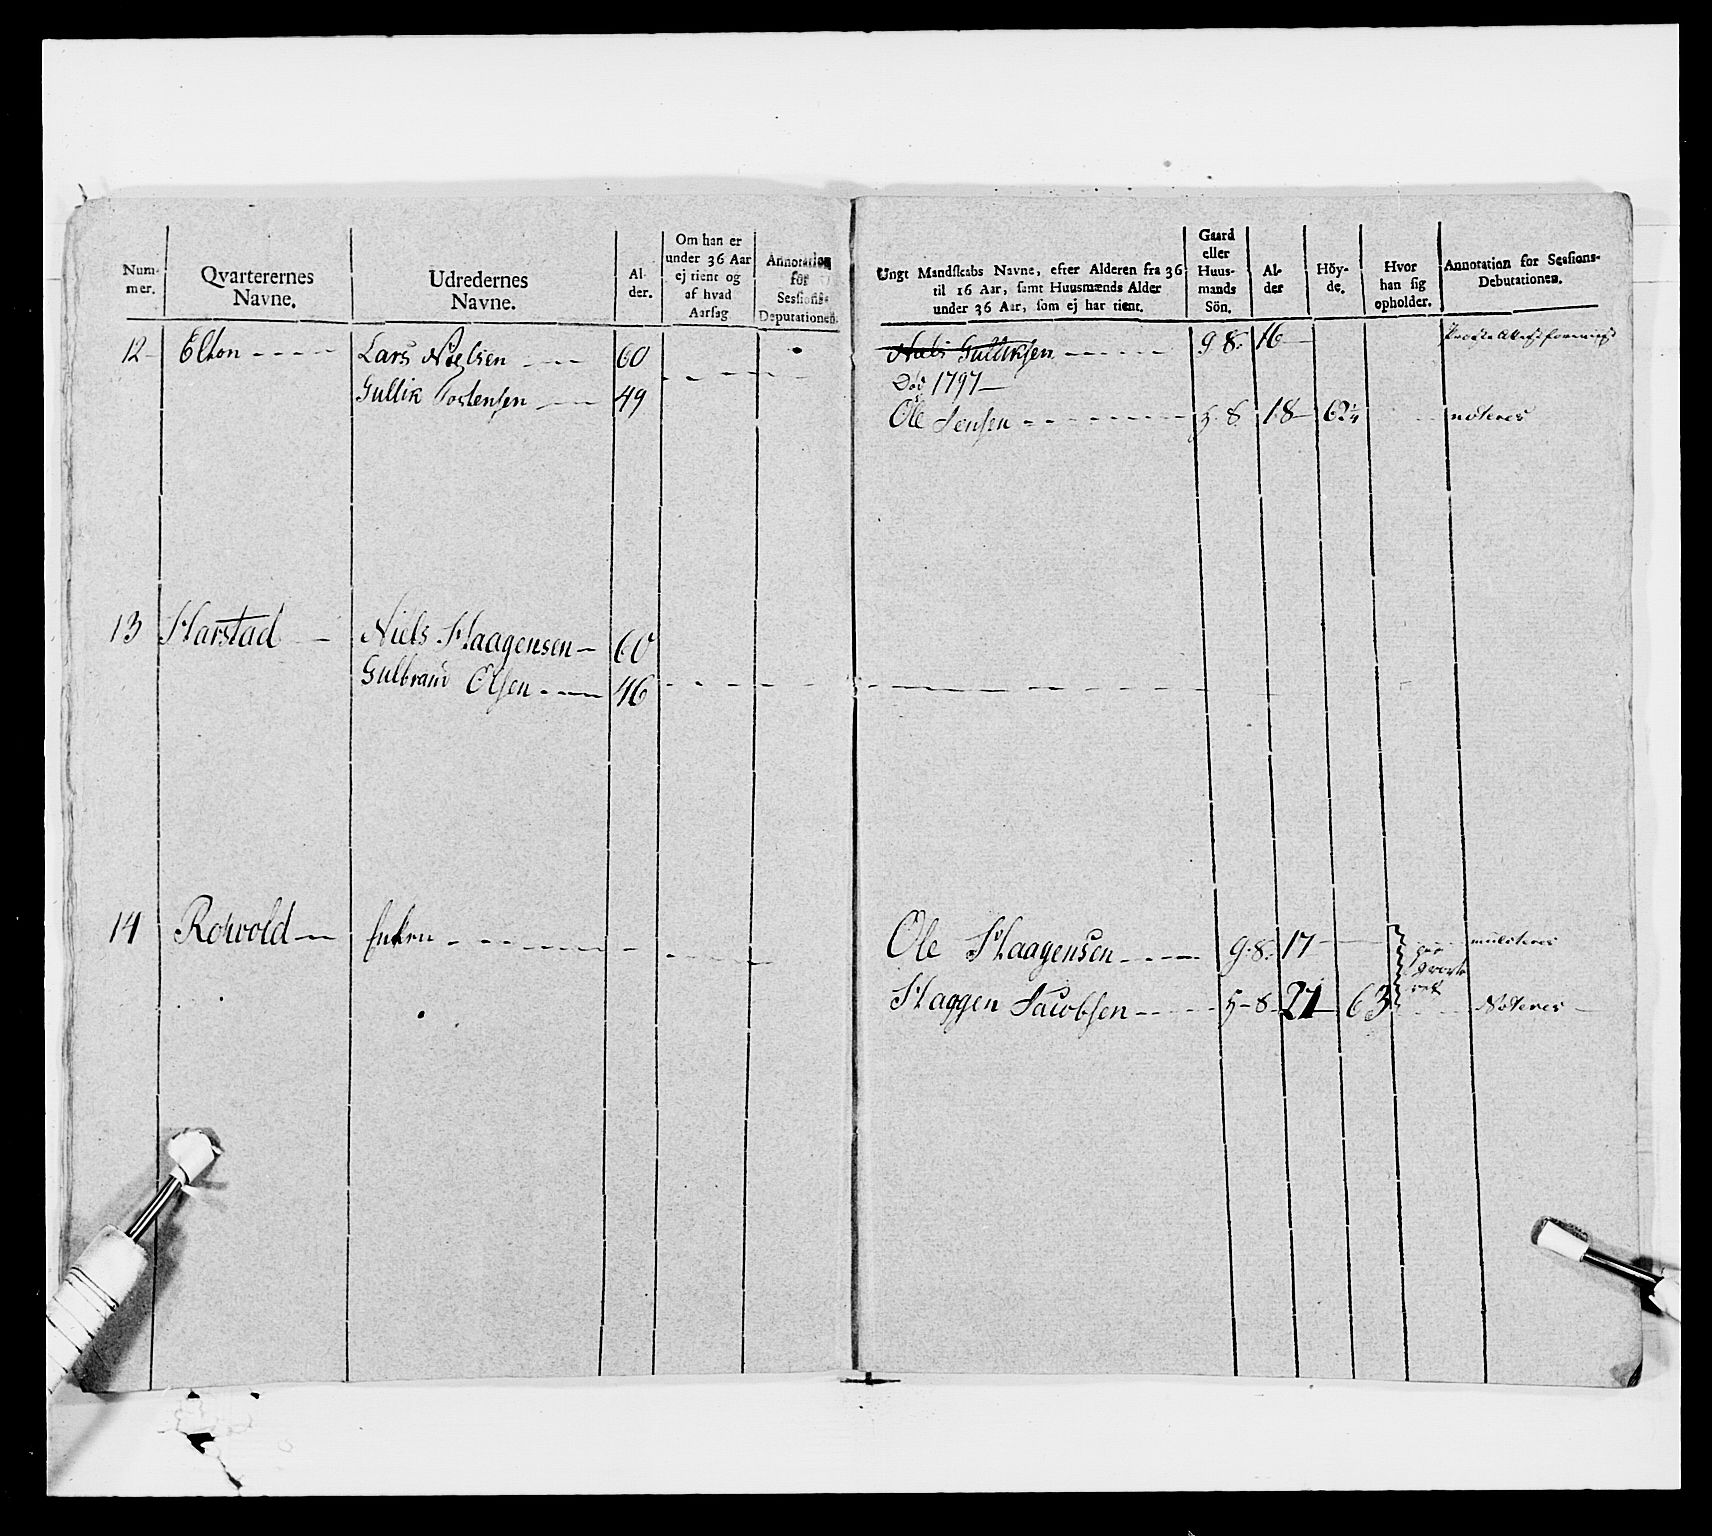 Num-
mer.
Qvarterernes
Navne.
Udredernes
Navne.
Al-
der.
Om han er
under 36 Aar
ej tient og
af hvad
Aarsag
Annotation
for
Sessions-
Deputationen.
Ungt Mandskabs Navne, efter Alderen fra 36
til 16 Aar, samt Huusmænds Alder
under 36 Aar, som ej har tient.
Gaard
eller
Huus-
mands
Sön.
Al-
der
Höy-
de.
Hvor
han sig
opholder.
Annotation for Sessions-
Debutationen.
12 Elton Lars Nielsen 60 Niels Gulliksen g. S. 16
Død 1797
Gullik Tostensen 49
Ole Jensen h. S. 18 62¼ noteres
13 Harstad Niels Haagensen 60
Gulbrand Olsen 46
14 Rotvold Enken Ole Haagensen g. S. 17
paa qvarte
ret
Haagen Jacobsen h S. 21 63 Noteres